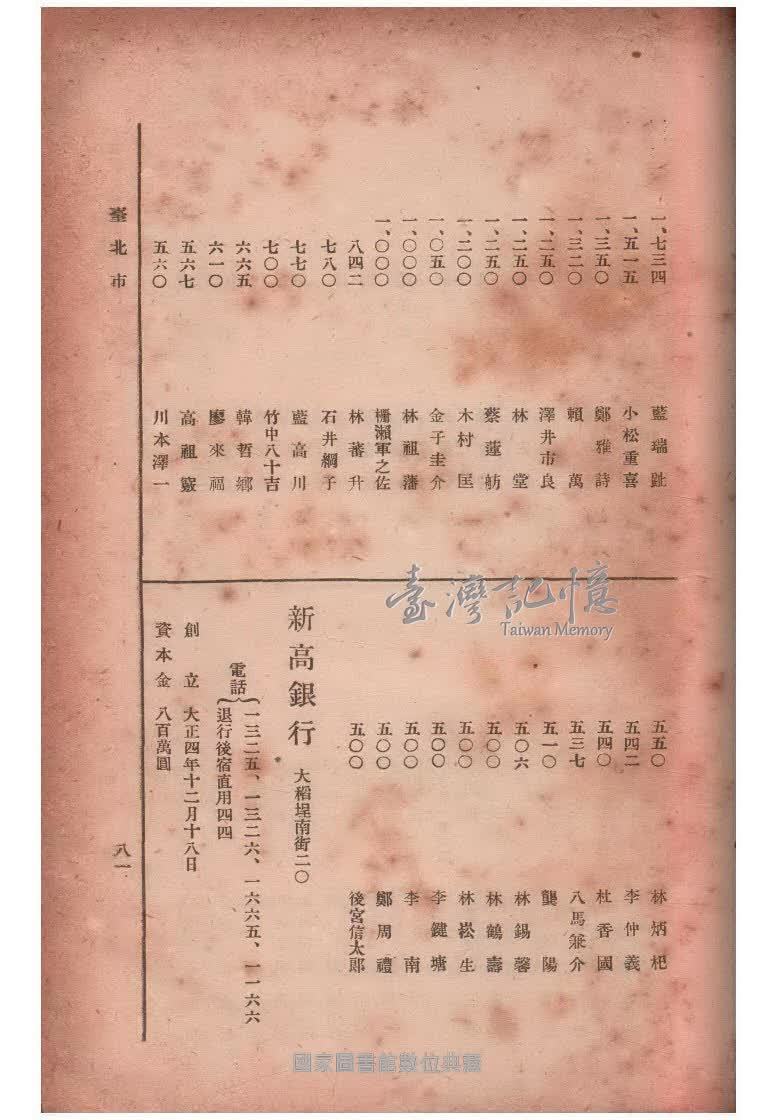 一、七三四 藍瑞趾
一、五一五 小松重喜
一、三五〇 鄭雅詩
一、三二〇 賴萬
一、二五〇 澤井市良
一、二五〇 林堂
一、二五〇 蔡蓮舫
一、二〇〇 木村匡
一、〇五〇 金子圭介
一、〇〇〇 林祖藩
一、〇〇〇 柵瀨軍之佐
八四二 林蕃升
七八〇 石井綱子
七七〇 藍高川
七〇〇 竹中八十吉
六六五 韓哲鄉
六一〇 廖來福
五六七 高祖竅
五六〇 川本澤一
五五〇 林炳杷
五四二 李仲義
五四〇 杜香國
五三七 八馬兼介
五一〇 龔陽
五〇六 林錫馨
五〇〇 林鶴壽
五〇〇 林崧生
五〇〇 李鍵塘
五〇〇 李南
五〇〇 鄭周禮
五〇〇 後宮信太郎
新高銀行 大稻埕南街二〇
電話 一三二五、一三二六、一六六五、一一六六
退行後宿直用四四
創立 大正四年十二月十八日
資本金 八百萬圓
臺北市
八一
臺灣記憶
Taiwan Memory
國家圖書館數位典藏